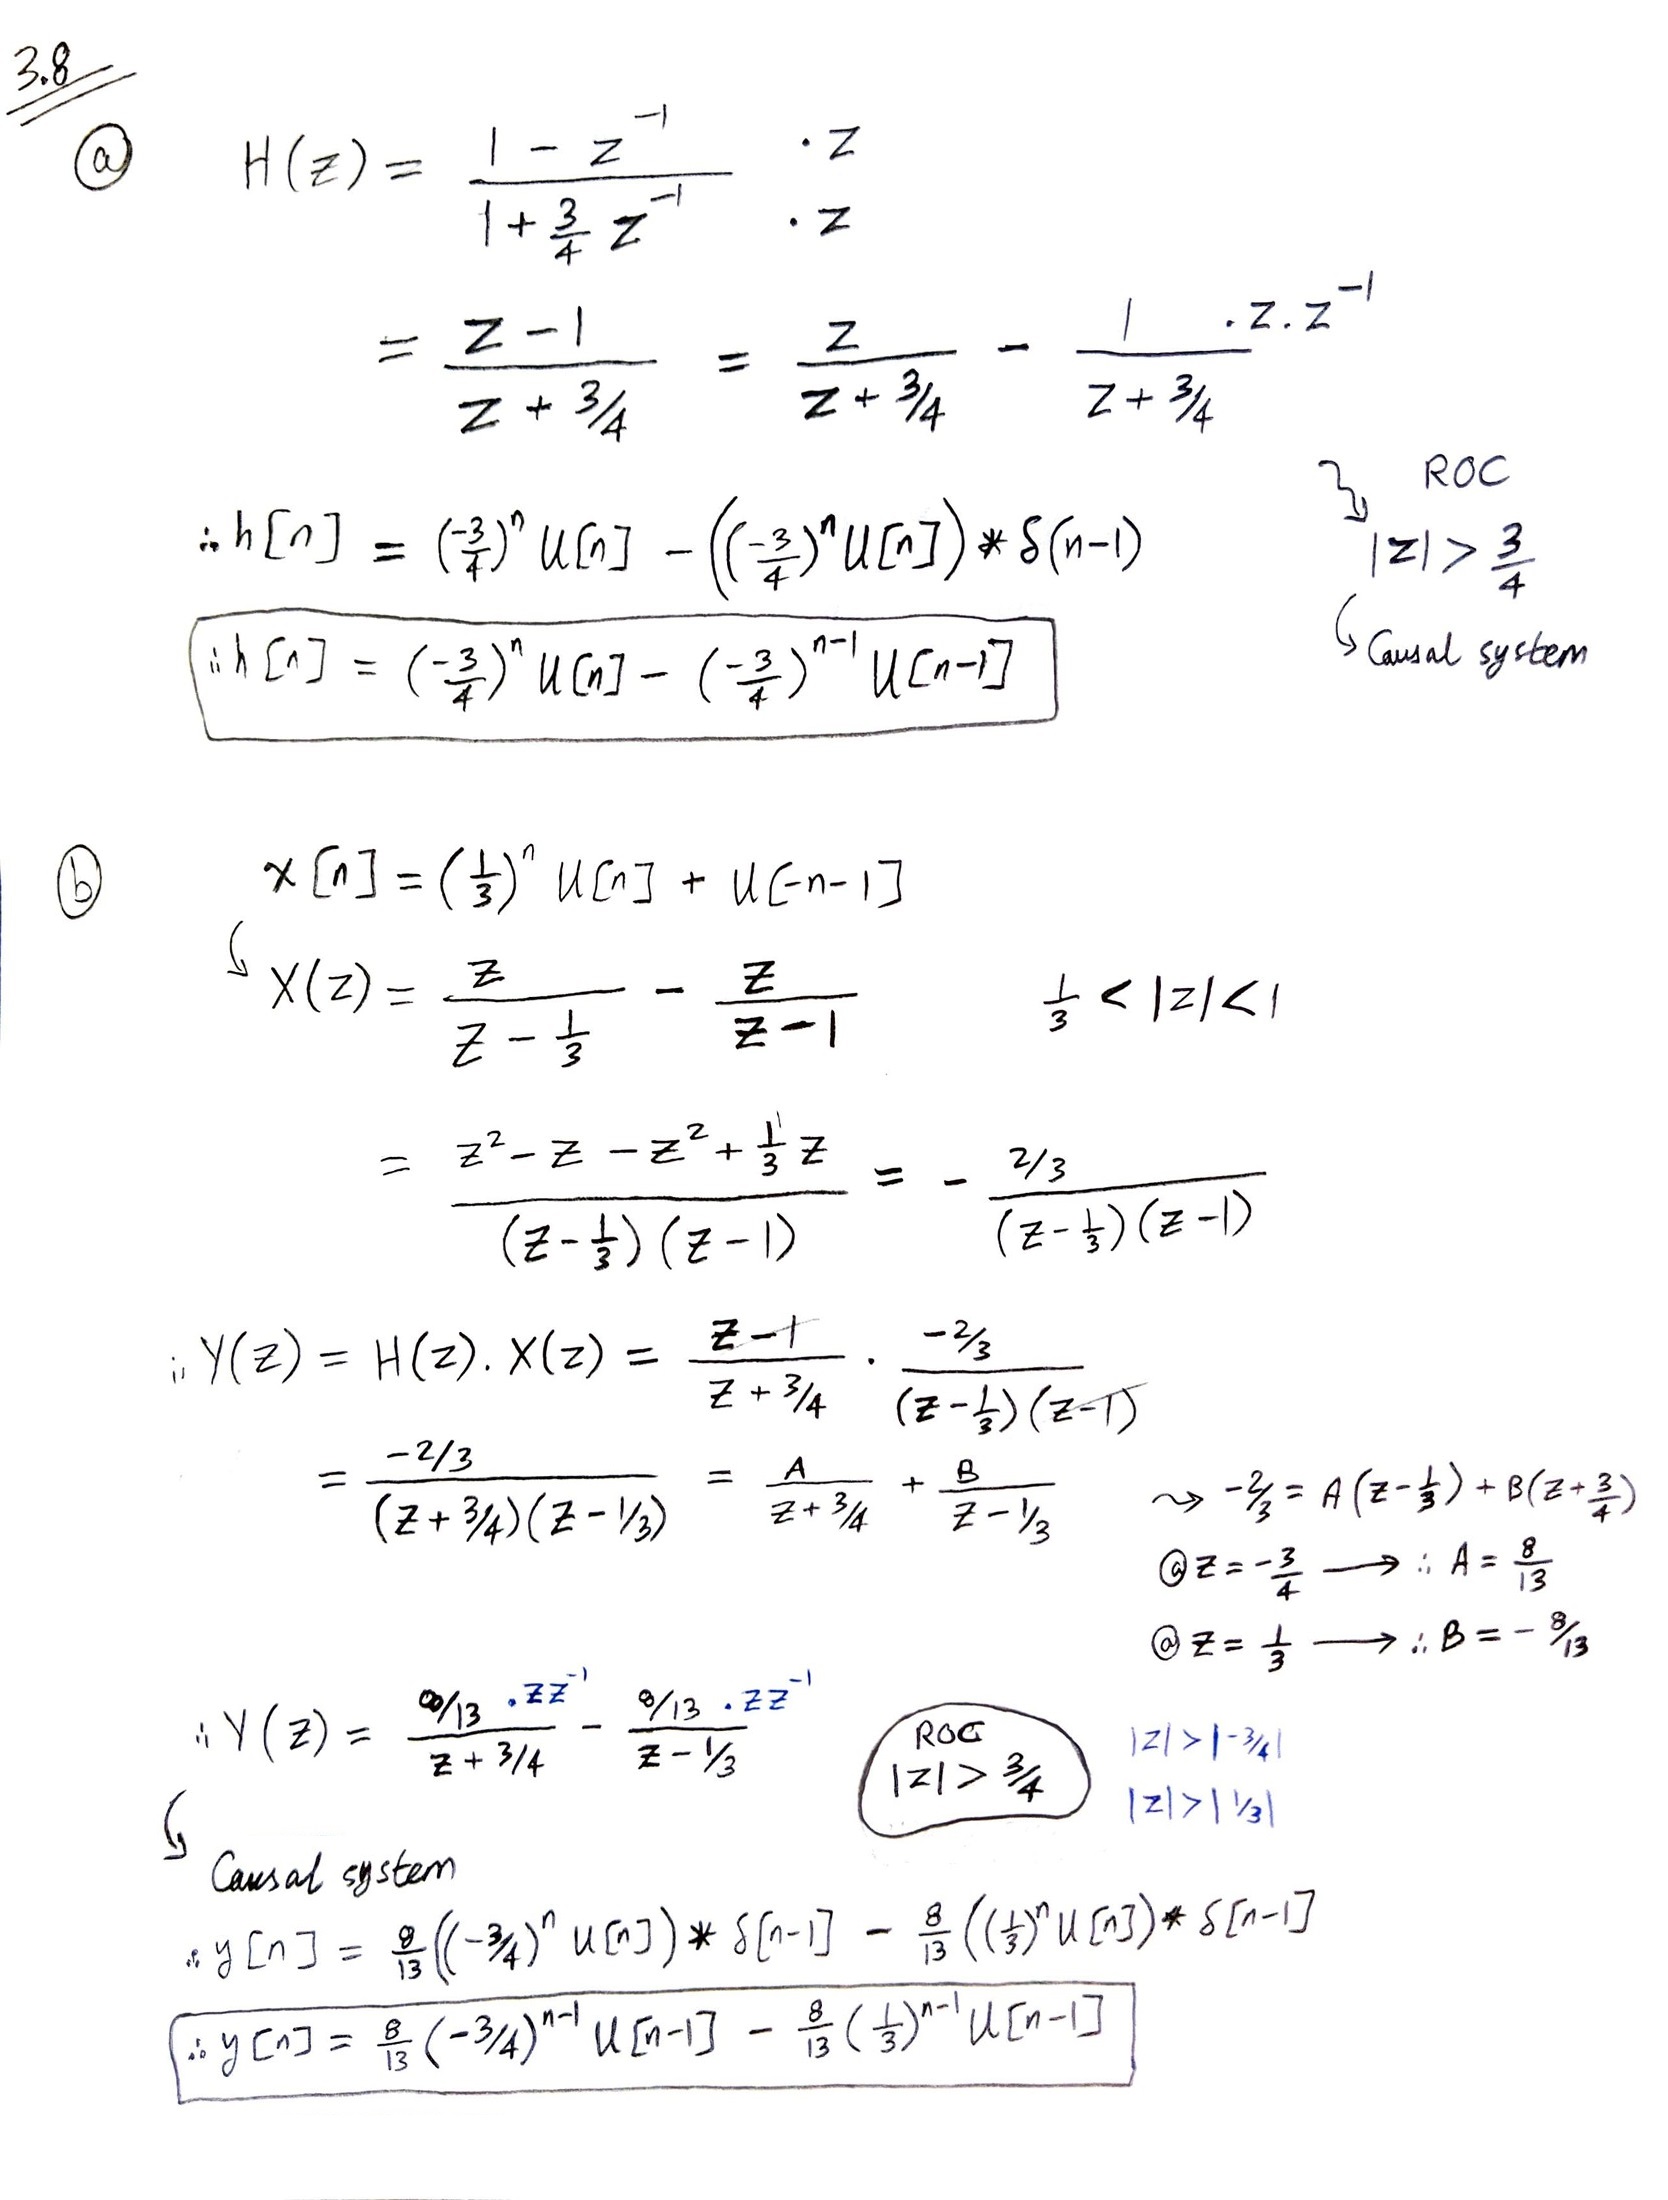 3.8
(a) H(z) = (1 - z^-1) / (1 + 3/4 z^-1) · z / · z
= (z - 1) / (z + 3/4) = z / (z + 3/4) - 1 / (z + 3/4) · z · z^-1
ROC
∴ h[n] = (-3/4)^n U[n] - ((-3/4)^n U[n]) * δ(n-1)
|z| > 3/4
∴ h[n] = (-3/4)^n U[n] - (-3/4)^(n-1) U[n-1]
↳ Causal system
(b) x[n] = (1/3)^n U[n] + U[-n-1]
↳ X(z) = z / (z - 1/3) - z / (z - 1) 1/3 < |z| < 1
= (z² - z - z² + 1/3 z) / ((z - 1/3)(z - 1)) = - (2/3) / ((z - 1/3)(z - 1))
∴ Y(z) = H(z) . X(z) = (z - 1) / (z + 3/4) · (-2/3) / ((z - 1/3)(z - 1))
= (-2/3) / ((z + 3/4)(z - 1/3)) = A / (z + 3/4) + B / (z - 1/3)
⇝ -2/3 = A(z - 1/3) + B(z + 3/4)
@ z = -3/4 → ∴ A = 8/13
@ z = 1/3 → ∴ B = - 8/13
∴ Y(z) = (8/13 · z z^-1) / (z + 3/4) - (8/13 · z z^-1) / (z - 1/3)
ROC
|z| > 3/4
|z| > |-3/4|
|z| > |1/3|
↳ Causal system
∴ y[n] = 8/13 ((-3/4)^n U[n]) * δ[n-1] - 8/13 ((1/3)^n U[n]) * δ[n-1]
∴ y[n] = 8/13 (-3/4)^(n-1) U[n-1] - 8/13 (1/3)^(n-1) U[n-1]